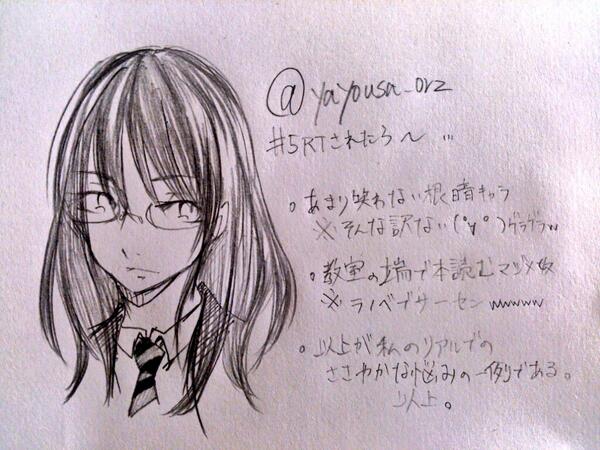 @yayousa_orz
#5RTされたら〜 …
。あまり笑わない根暗キャラ
※そんな訳ない(°∀°)ゲラゲラw
。教室の端で本読むマジメ女
※ラノベでサーセンwwwww
。以上が私のリアルでの
ささやかな悩みの一例である。
以上。